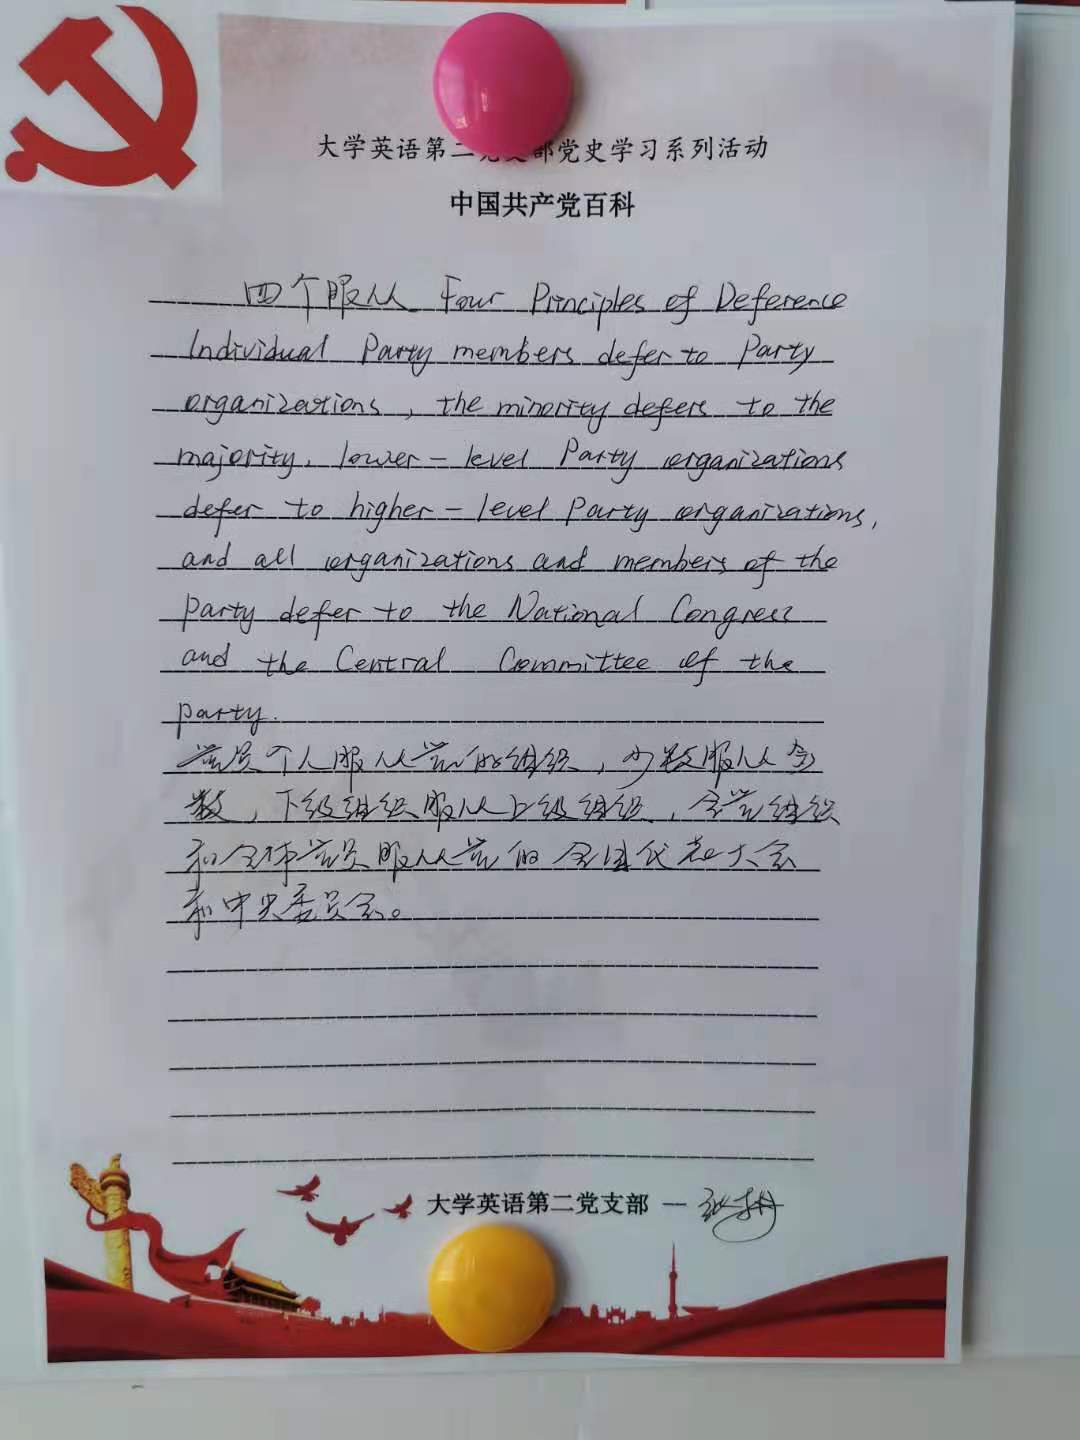 大学英语第二党支部党史学习系列活动
中国共产党百科
四个服从 Four Principles of Deference
Individual Party members defer to Party
organizations, the minority defers to the
majority, lower-level Party organizations
defer to higher-level Party organizations,
and all organizations and members of the
Party defer to the National Congress
and the Central Committee of the
party.
党员个人服从党的组织，少数服从多
数，下级组织服从上级组织，全党组织
和全体党员服从党的全国代表大会
和中央委员会。
大学英语第二党支部 —